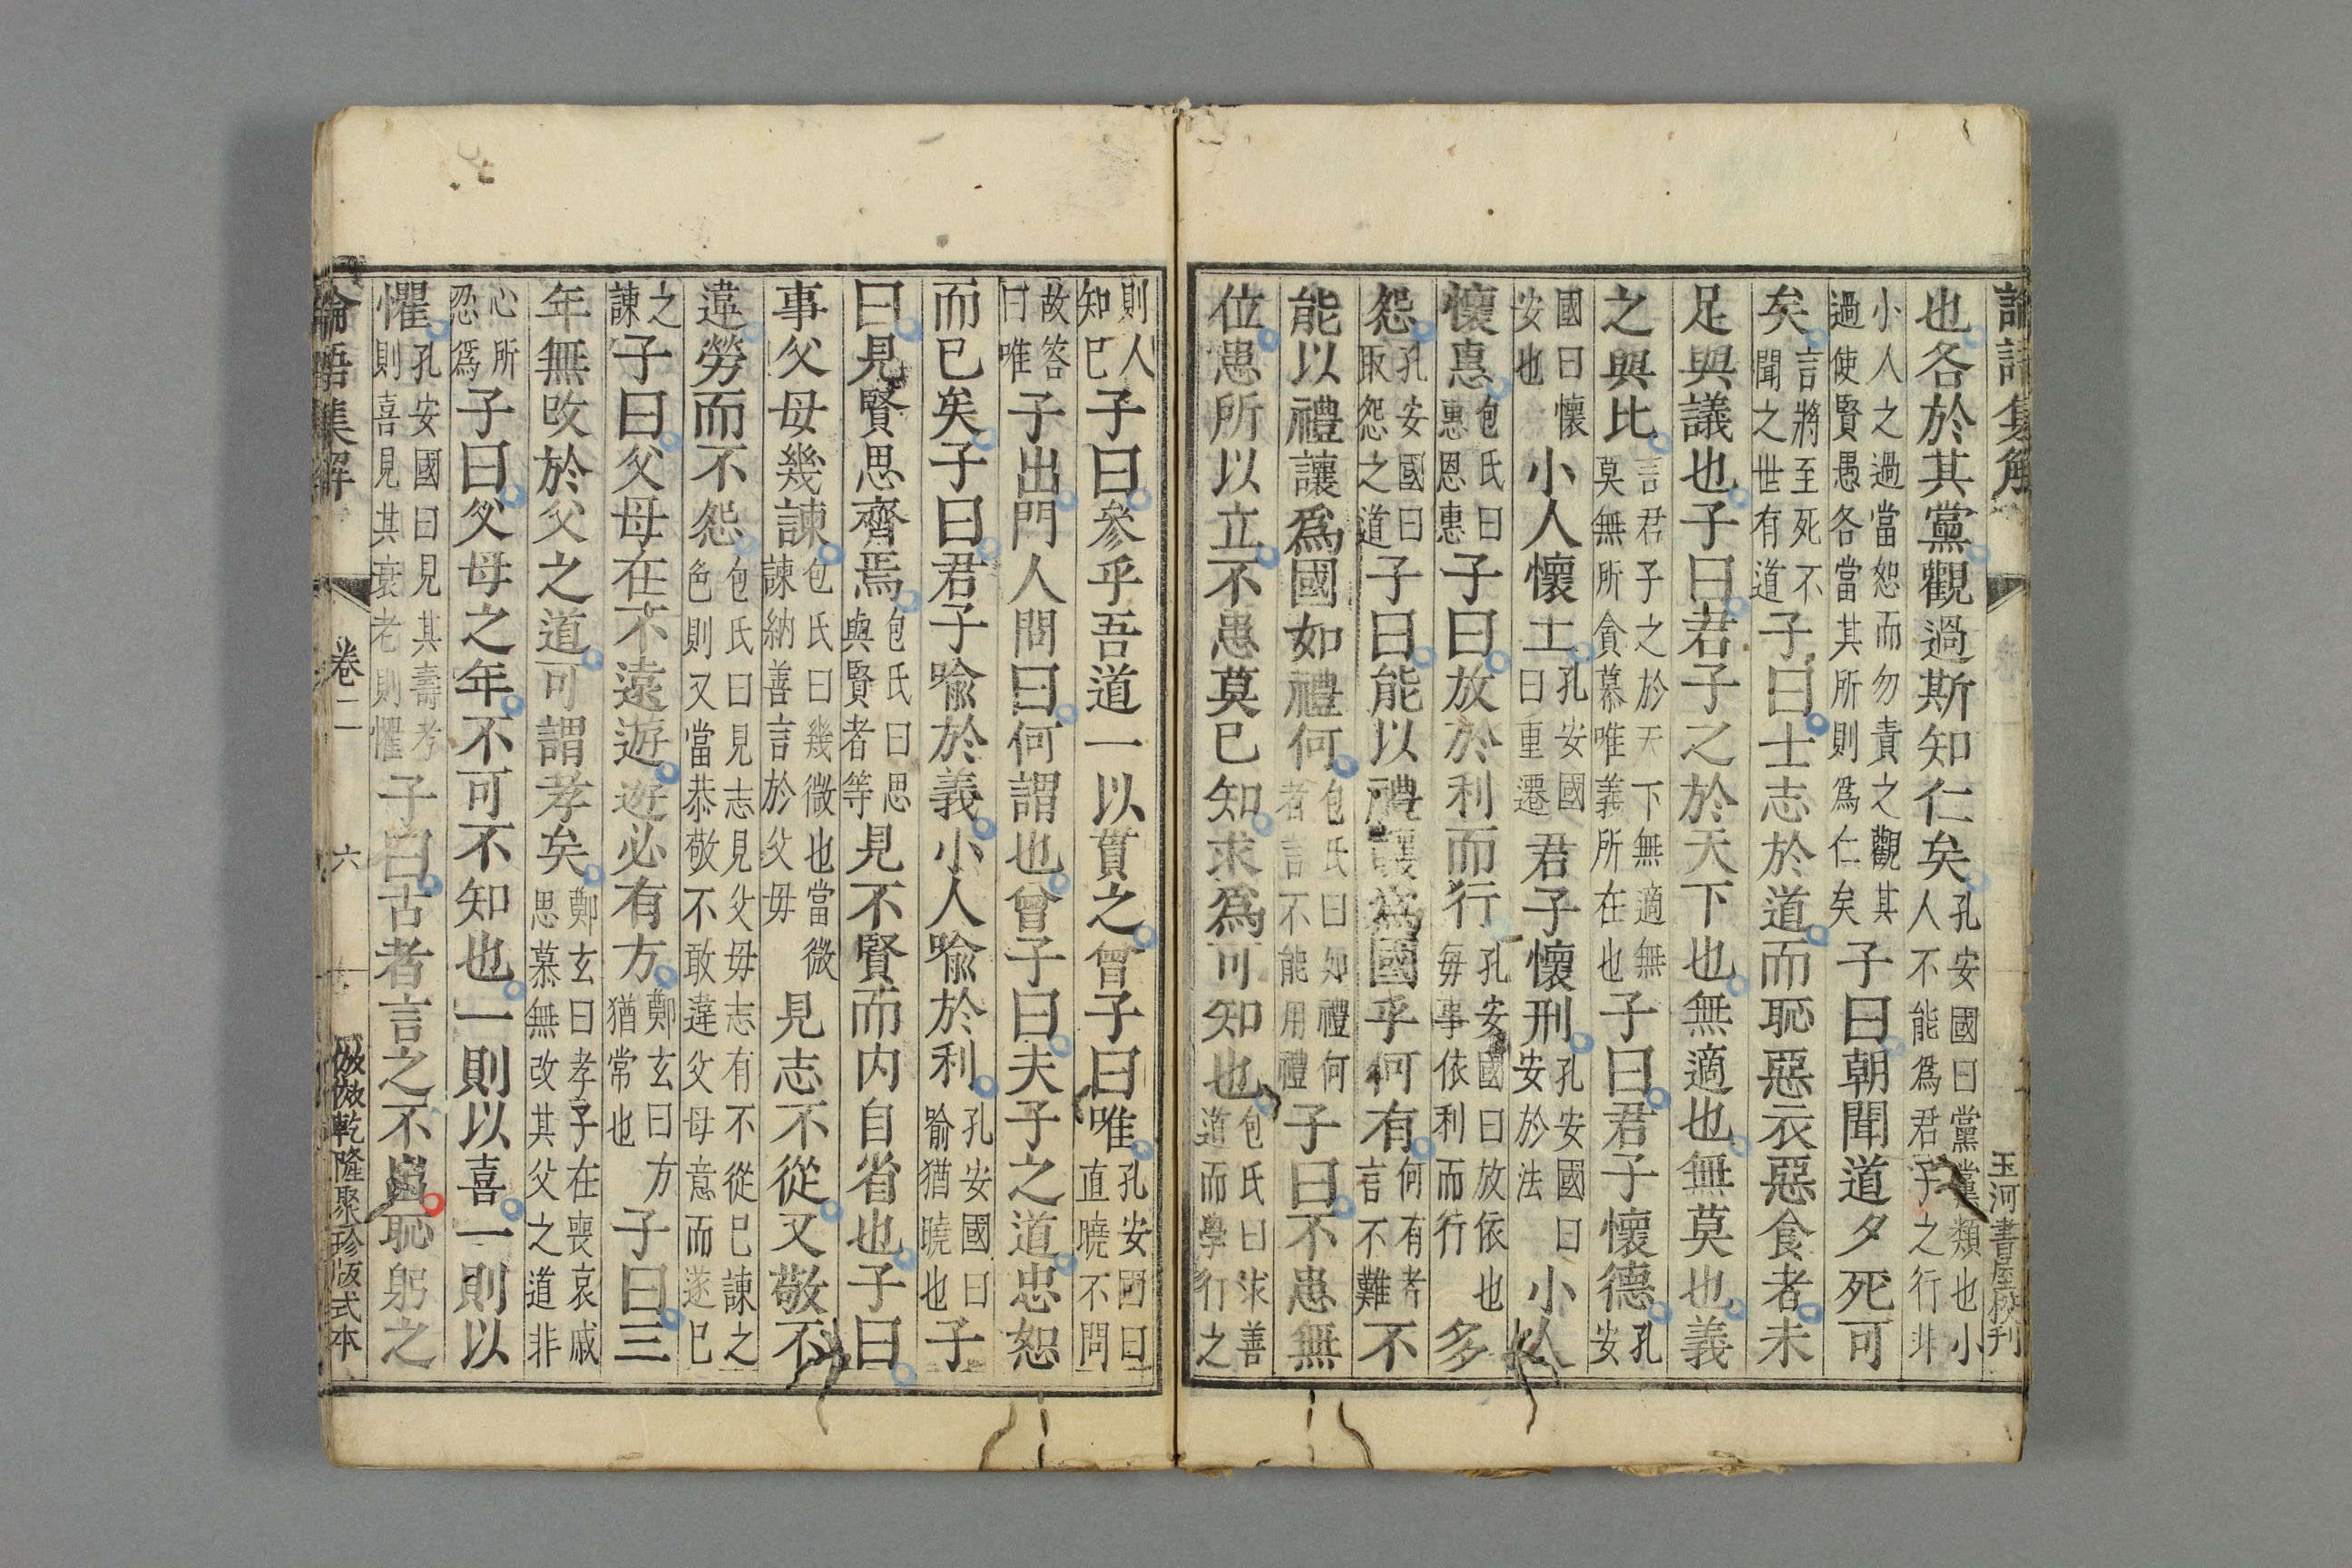 論語集解
玉河書屋校刊
也各於其黨觀過斯知仁矣孔安國曰黨黨類也小人不能爲君子之行非
小人之過當恕而勿責之觀其過使賢愚各當其所則爲仁矣子曰朝聞道夕死可
矣言將至死不聞之世有道子曰士志於道而恥惡衣惡食者未
足與議也子曰君子之於天下也無適也無莫也義
之與比言君子之於天下無適無莫無所貪慕唯義所在也子曰君子懷德孔安
國曰懷安也小人懷土孔安國曰重遷君子懷刑孔安國曰安於法小人
懷惠包氏曰惠恩惠子曰放於利而行孔安國曰放依也毎事依利而行多
怨孔安國曰取怨之道子曰能以禮讓爲國乎何有何有者言不難不
能以禮讓爲國如禮何包氏曰如禮何者言不能用禮子曰不患無
位患所以立不患莫已知求爲可知也包氏曰求善道而學行之
則人知已子曰參乎吾道一以貫之曾子曰唯孔安國曰直曉不問
故答曰唯子出門人問曰何謂也曾子曰夫子之道忠恕
而已矣子曰君子喩於義小人喩於利孔安國曰喩猶曉也子
曰見賢思齊焉包氏曰思與賢者等見不賢而内自省也子曰
事父母幾諫包氏曰幾微也當微諫納善言於父毋見志不從又敬不
違勞而不怨包氏曰見志見父毋志有不從已諫之色則又當恭敬不敢違父母意而遂已
之諫子曰父母在不遠遊遊必有方鄭玄曰方猶常也子曰三
年無改於父之道可謂孝矣鄭玄曰孝子在喪哀戚思慕無改其父之道非
心所忍爲子曰父母之年不可不知也一則以喜一則以
懼孔安國曰見其壽考則喜見其衰老則懼子曰古者言之不出恥躬之
論語集解
卷二
六
倣乾隆聚珍版式本